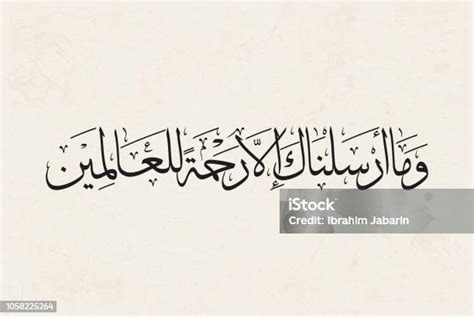 وَمَا أَرْسَلْنَاكَ إِلَّا رَحْمَةً لِلْعَالَمِيْنَ
iStock
Credit: Ibrahim Jabarin
1058225264